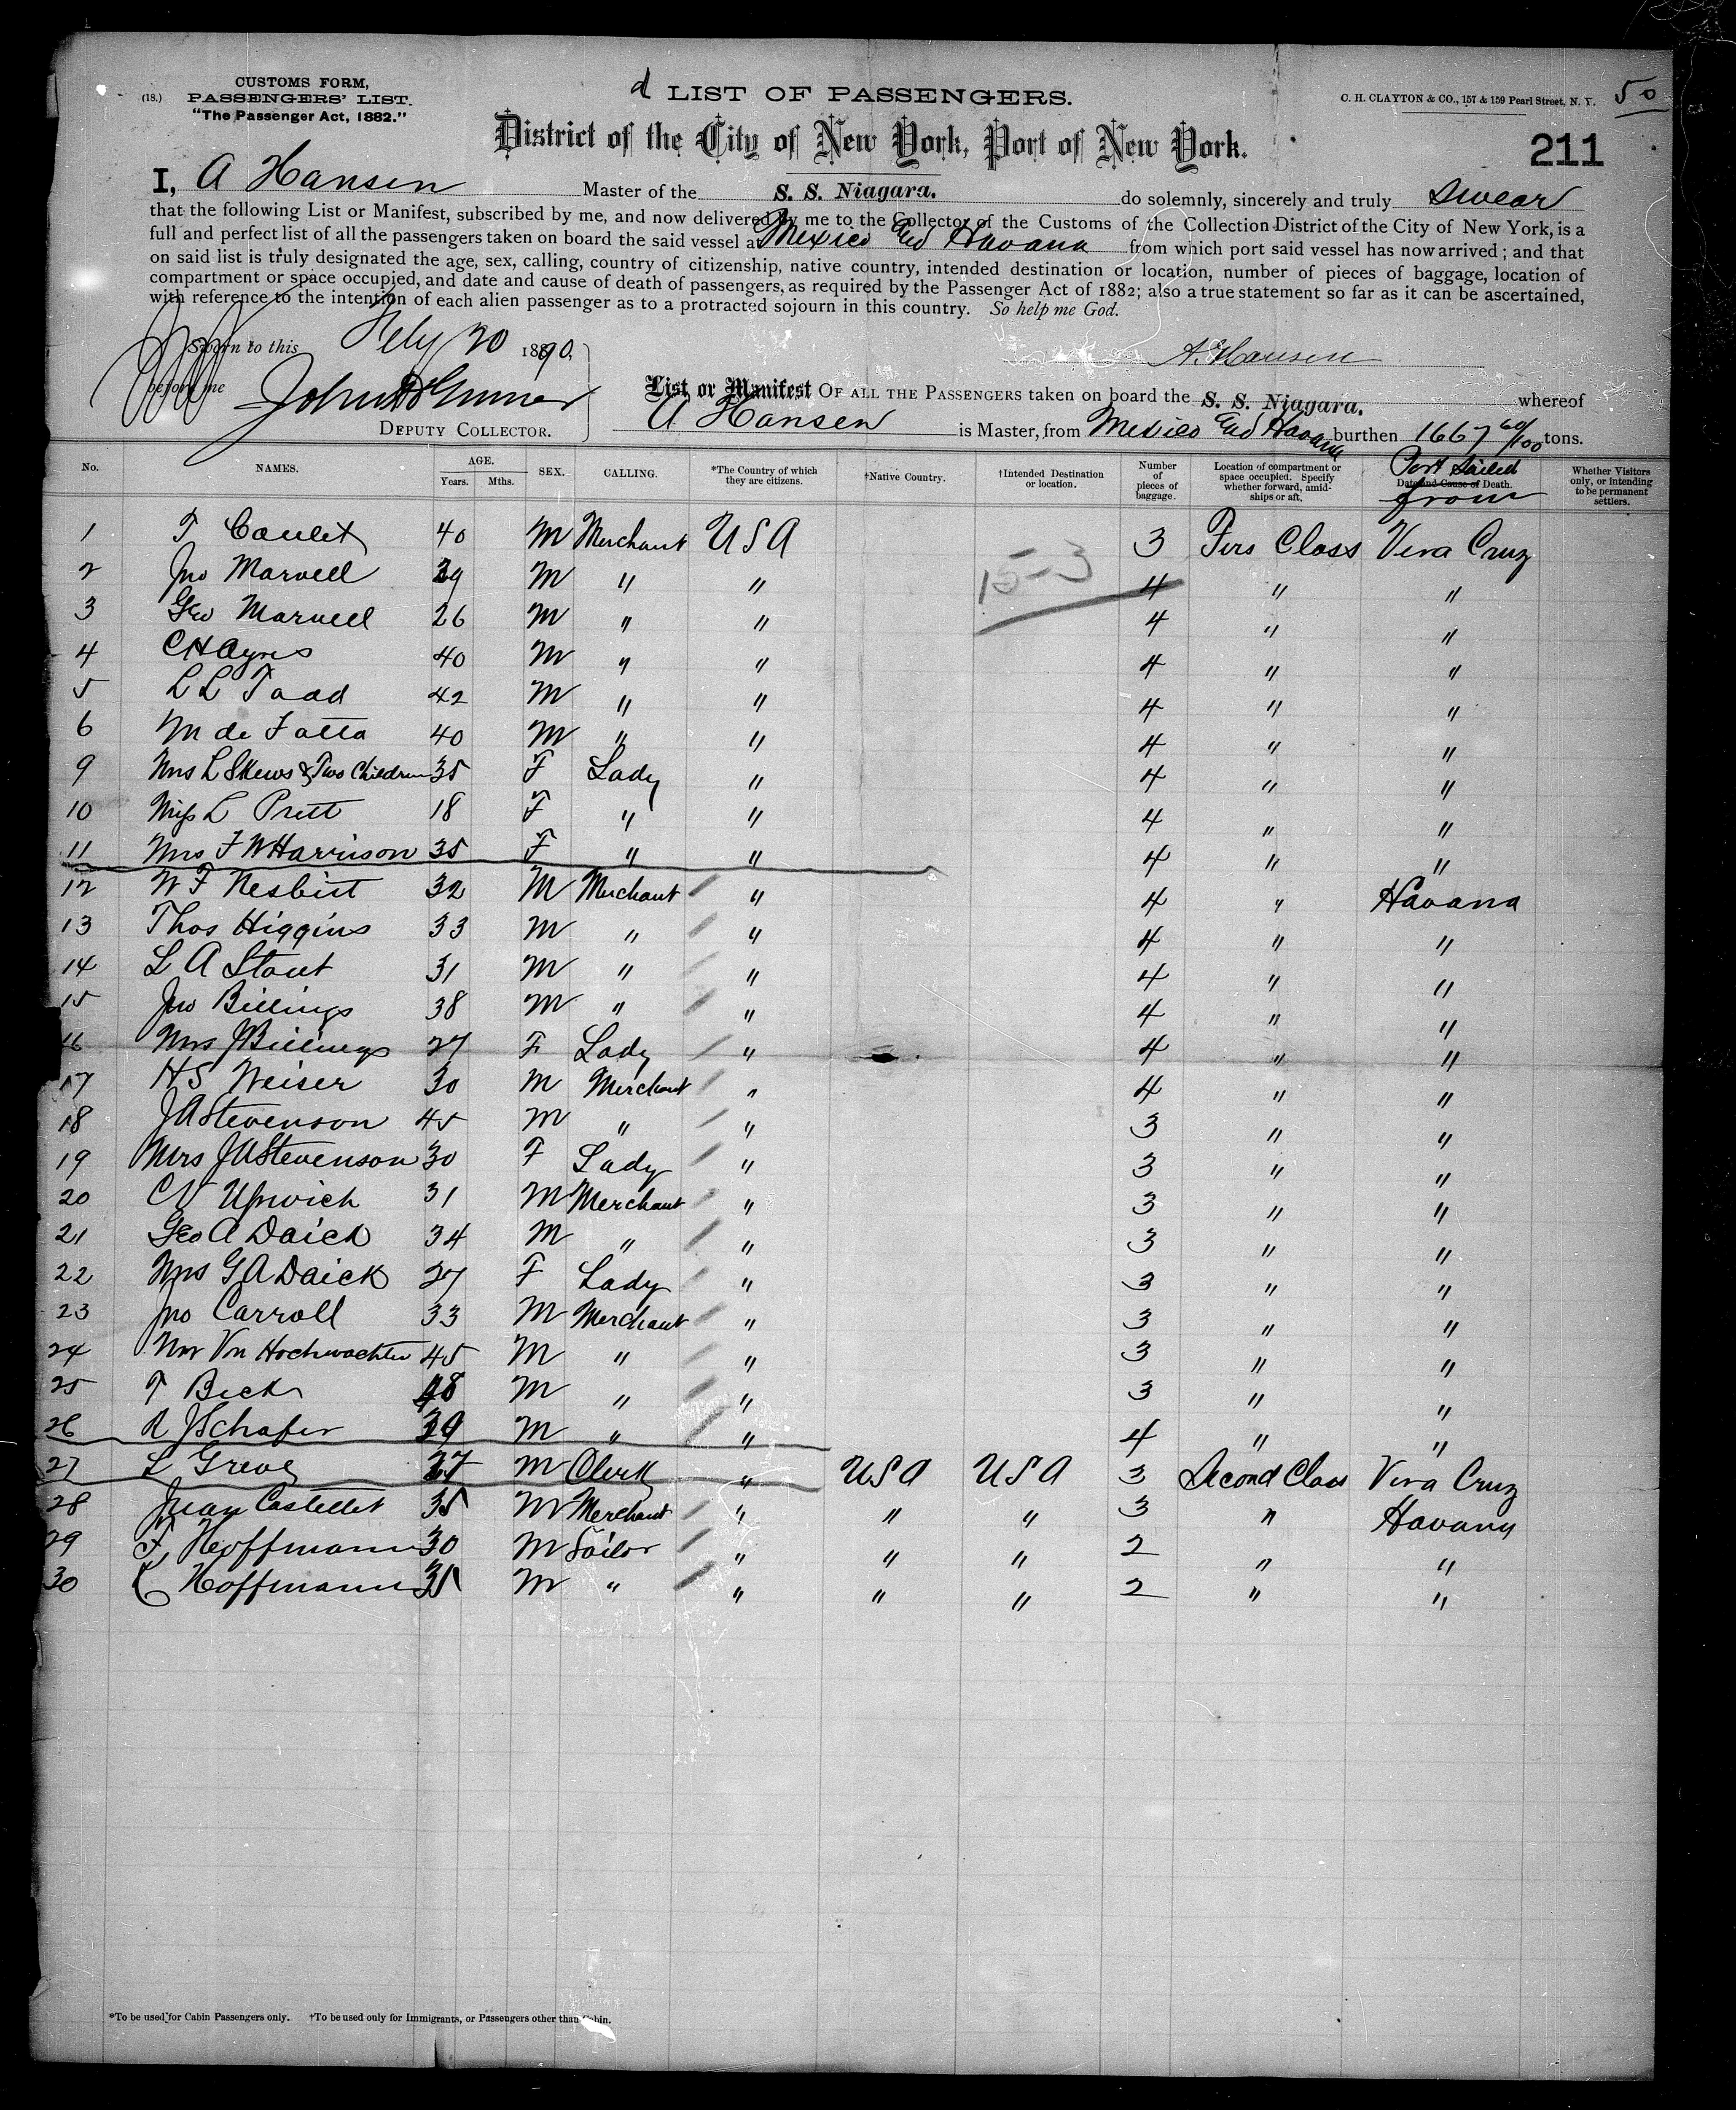 CUSTOMS FORM,
(18.) PASSENGERS' LIST.
"The Passenger Act, 1882."
LIST OF PASSENGERS.
C. H. CLAYTON & CO., 157 & 159 Pearl Street, N. Y.
50
District of the City of New York, Port of New York.
211
I, A Hansen Master of the S. S. Niagara. do solemnly, sincerely and truly swear
that the following List or Manifest, subscribed by me, and now delivered by me to the Collector of the Customs of the Collection District of the City of New York, is a
full and perfect list of all the passengers taken on board the said vessel at Mexico and Havana from which port said vessel has now arrived; and that
on said list is truly designated the age, sex, calling, country of citizenship, native country, intended destination or location, number of pieces of baggage, location of
compartment or space occupied, and date and cause of death of passengers, as required by the Passenger Act of 1882; also a true statement so far as it can be ascertained,
with reference to the intention of each alien passenger as to a protracted sojourn in this country. So help me God.
Sworn to this Feby 20 1890.
A. Hansen
before me John
DEPUTY COLLECTOR.
List or Manifest OF ALL THE PASSENGERS taken on board the S. S. Niagara. whereof
A Hansen is Master, from Mexico and Havana burthen 1667 60/100 tons.
No. NAMES. AGE. Years. Mths. SEX. CALLING. *The Country of which they are citizens. †Native Country. †Intended Destination or location. Number of pieces of baggage. Location of compartment or space occupied. Specify whether forward, amidships or aft. Date and Cause of Death. Port Sailed from Whether Visitors only, or intending to be permanent settlers.
1 T Coulet 40 M Merchant USA 3 Firs Class Vera Cruz
15-3
2 Jno Marvell 29 M " " 4 " "
3 Geo Marvell 26 M " " 4 " "
4 CH Ayres 40 M " " 4 " "
5 L L Todd 42 M " " 4 " "
6 M de Fatta 40 M " " 4 " "
9 Mrs L Skews & Two Children 35 F Lady " 4 " "
10 Miss L Pritt 18 F " " 4 " "
11 Mrs F W Harrison 35 F " " 4 " "
12 W F Nesbitt 32 M Merchant " 4 " Havana
13 Thos Higgins 33 M " " 4 " "
14 L A Stout 31 M " " 4 " "
15 Jno Billings 38 M " " 4 " "
16 Mrs J Billings 27 F Lady " 4 " "
17 HS Weiser 30 M Merchant " 4 " "
18 JA Stevenson 45 M " " 3 " "
19 Mrs JA Stevenson 30 F Lady " 3 " "
20 C N Upwich 31 M Merchant " 3 " "
21 Geo A Daick 34 M " " 3 " "
22 Mrs G A Daick 27 F Lady " 3 " "
23 Jno Carroll 33 M Merchant " 3 " "
24 Mr Vn Hochwachter 45 M " " 3 " "
25 T Beck 48 M " " 3 " "
26 A J Schafer 39 M " " 4 " "
27 L Greve 27 M Clerk " USA USA 3 Second Class Vera Cruz
28 Juan Castellet 35 M Merchant " " " 3 " Havana
29 F Hoffmann 30 M Sailor " " " 2 " "
30 C Hoffmann 31 M " " " " 2 " "
*To be used for Cabin Passengers only. †To be used only for Immigrants, or Passengers other than Cabin.